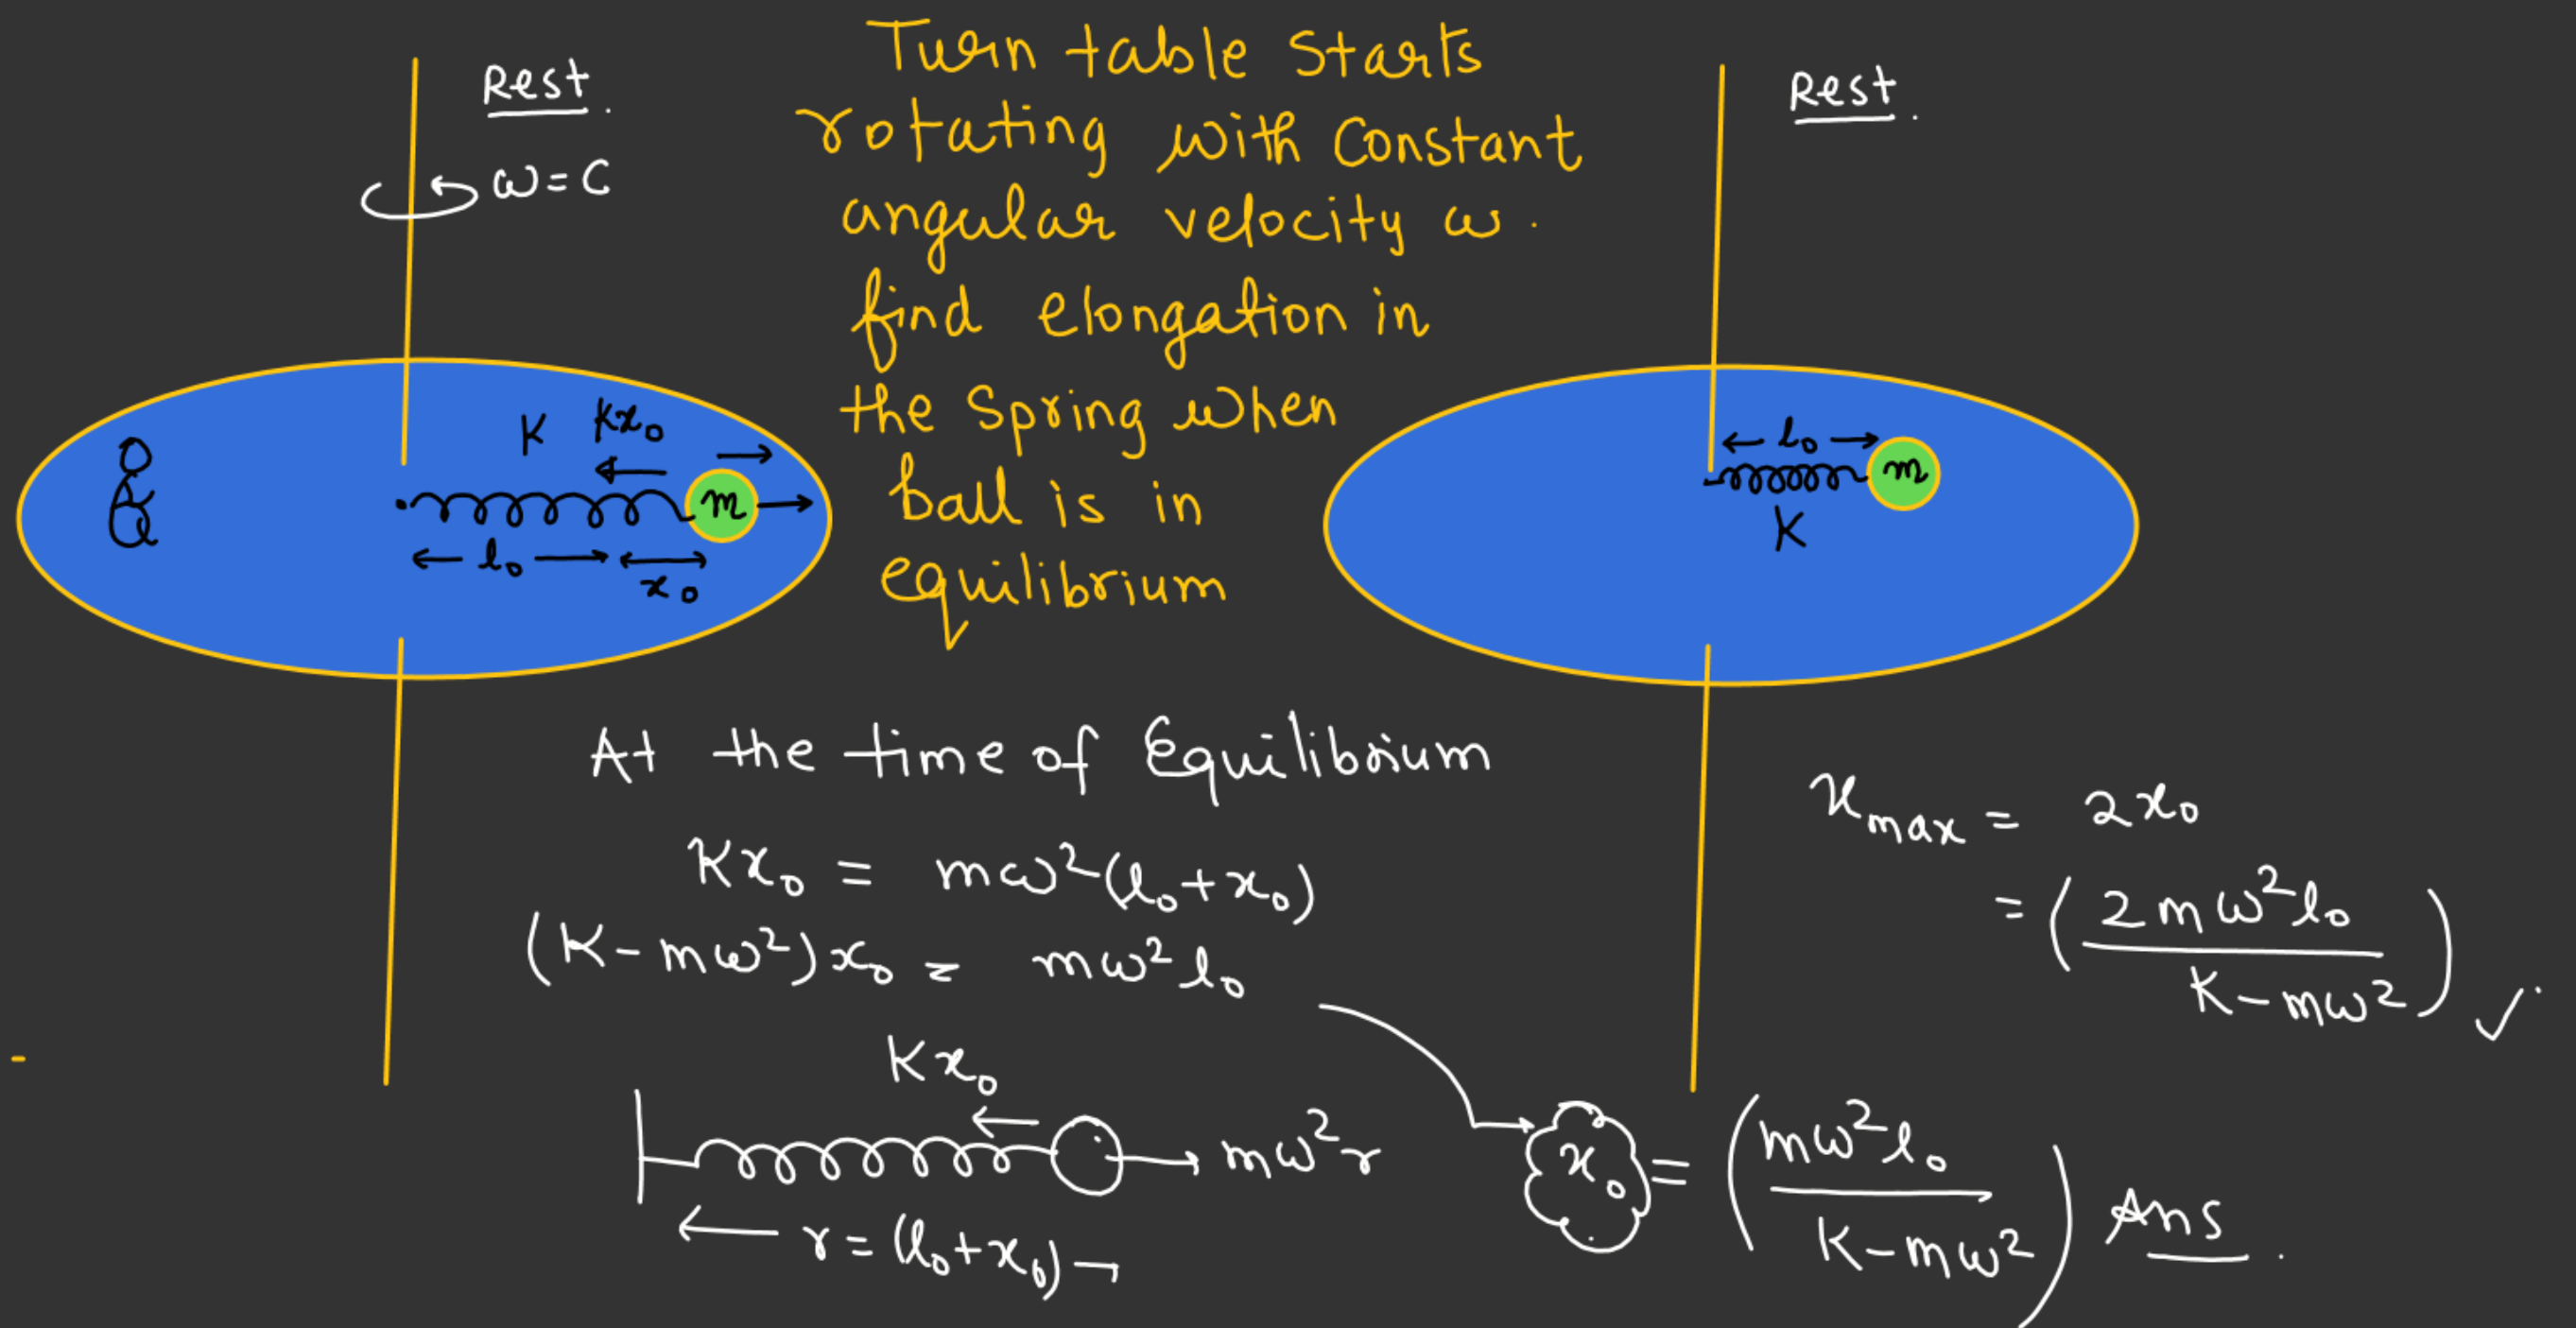 Rest.
ω = C
Turn table Starts
rotating with Constant
angular velocity ω.
find elongation in
the Spring when
ball is in
equilibrium
Rest.
K Kx₀
m
l₀ x₀
l₀
m
K
At the time of Equilibrium
Kx₀ = mω²(l₀+x₀)
(K-mω²)x₀ = mω²l₀
Kx₀
mω²r
r = (l₀+x₀)
x₀ = (mω²l₀ / K-mω²) Ans.
xmax = 2x₀
= (2mω²l₀ / K-mω²) ✓